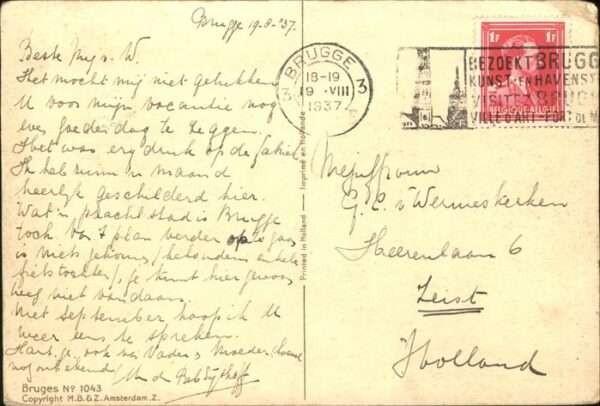 Brugge 19-8-'37.
Beste Mej. v. W.
Het mocht mij niet gelukken
U voor mijn vacantie nog
even goedendag te zeggen.
Het was erg druk op de
Ik heb ruim 'n maand
heerlijk geschilderd hier.
Wat 'n prachtstad is Brugge
toch. Van 't plan verder op te gaan
is niets gekomen, (behoudens enkele
fietstochten), je komt hier gewoon
weg niet vandaan.
Met September hoop ik U
weer eens te spreken.
Hart. gr. ook van Vader & Moeder
nog onbekend)
Bruges Nº 1043
Copyright M.B.&Z. Amsterdam. Z.
Printed in Holland — Imprimé en Hollande
BRUGGE
3 18-19 3
19 -VIII
1937
BEZOEKT BRUGG
KUNST- EN HAVENST
VISITEZ BRUG
VILLE D'ART - PORT DE M
1F 1F
BELGIQUE-BELGIE
Mejuffrouw
G. C. v Wermeskerken
Heerenlaan 6
Zeist
Holland